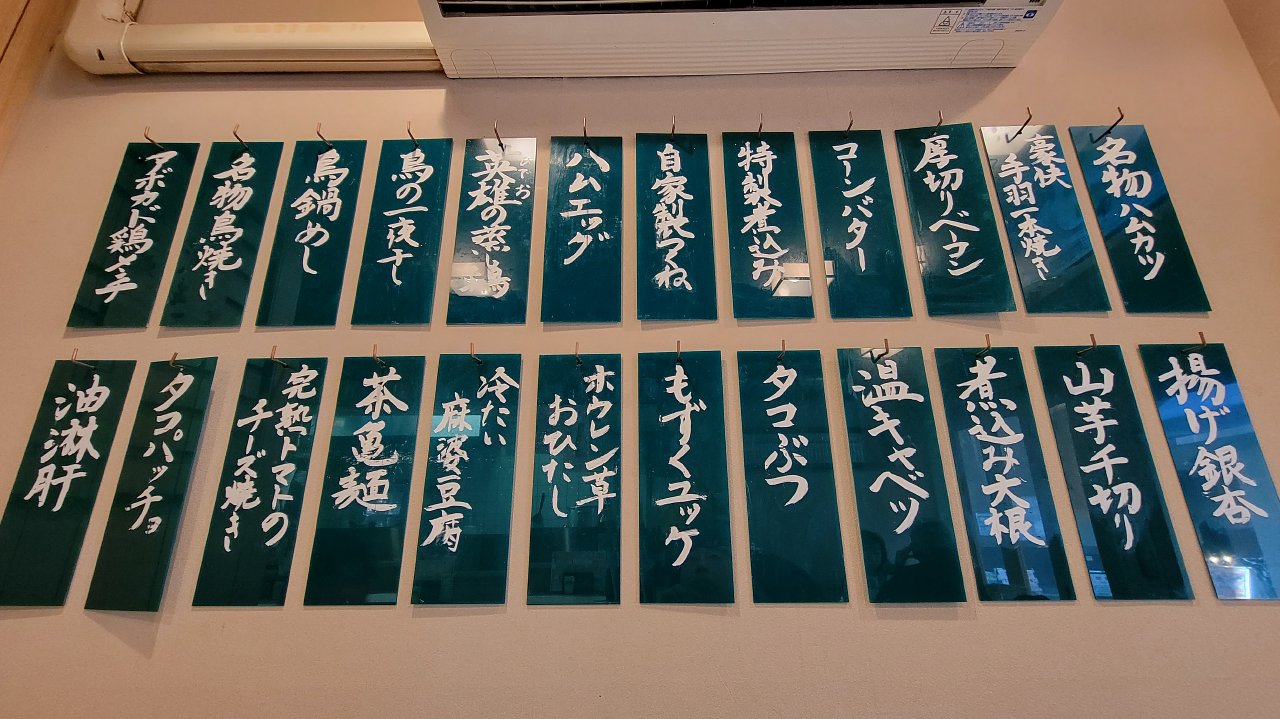 名物ハムカツ
豪快
手羽一本焼き
厚切りベーコン
コーンバター
特製煮込み
自家製つくね
ハムエッグ
ひでお
英雄の蒸鶏
鳥の一夜干し
鳥鍋めし
名物鳥焼き
アボガド鶏
揚げ銀杏
山芋千切り
煮込み大根
温キャベツ
タコぶつ
もずくユッケ
ホウレン草
おひたし
冷たい
麻婆豆腐
茶亀麺
完熟トマトの
チーズ焼き
タコパッチョ
油淋肝